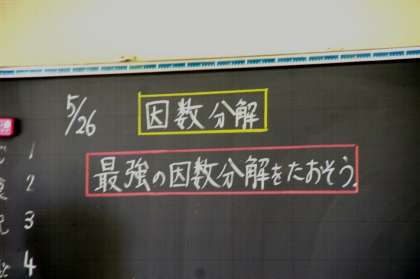 5/26
因数分解
最強の因数分解をたおそう.
1
2
3
4